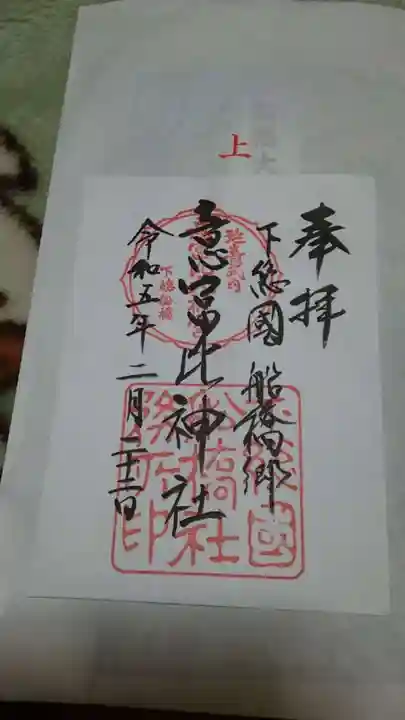 上
奉拝
下総國 船橋郷
意富比神社
令和五年二月二十三日
延喜式内
下総船橋